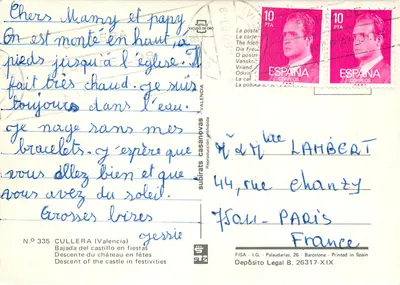 Chers Mamy et papy
On est monté en haut, à
pieds jusqu'à l'église. Il
fait très chaud. Je suis
toujours dans l'eau.
Je nage sans mes
bracelets. J'espère que
vous allez bien et que
vous avez du soleil.
Grosses bises
Jessie
N.º 335 CULLERA (Valencia)
Bajada del castillo en fiestas
Descente du château en fêtes
Descent of the castle in festivities
subirats casanovas
VALENCIA
10
PTA
ESPAÑA
CORREOS
10
PTA
ESPAÑA
CORREOS
La poste
La carte
Die
Vanskri
Printed in Spain
Mr & Mme LAMBERT
44, rue Chanzy
75011 - PARIS
France
FISA - I.G. - Palaudarias, 26 - Barcelona - Printed in Spain
Depósito Legal B. 26317-XIX